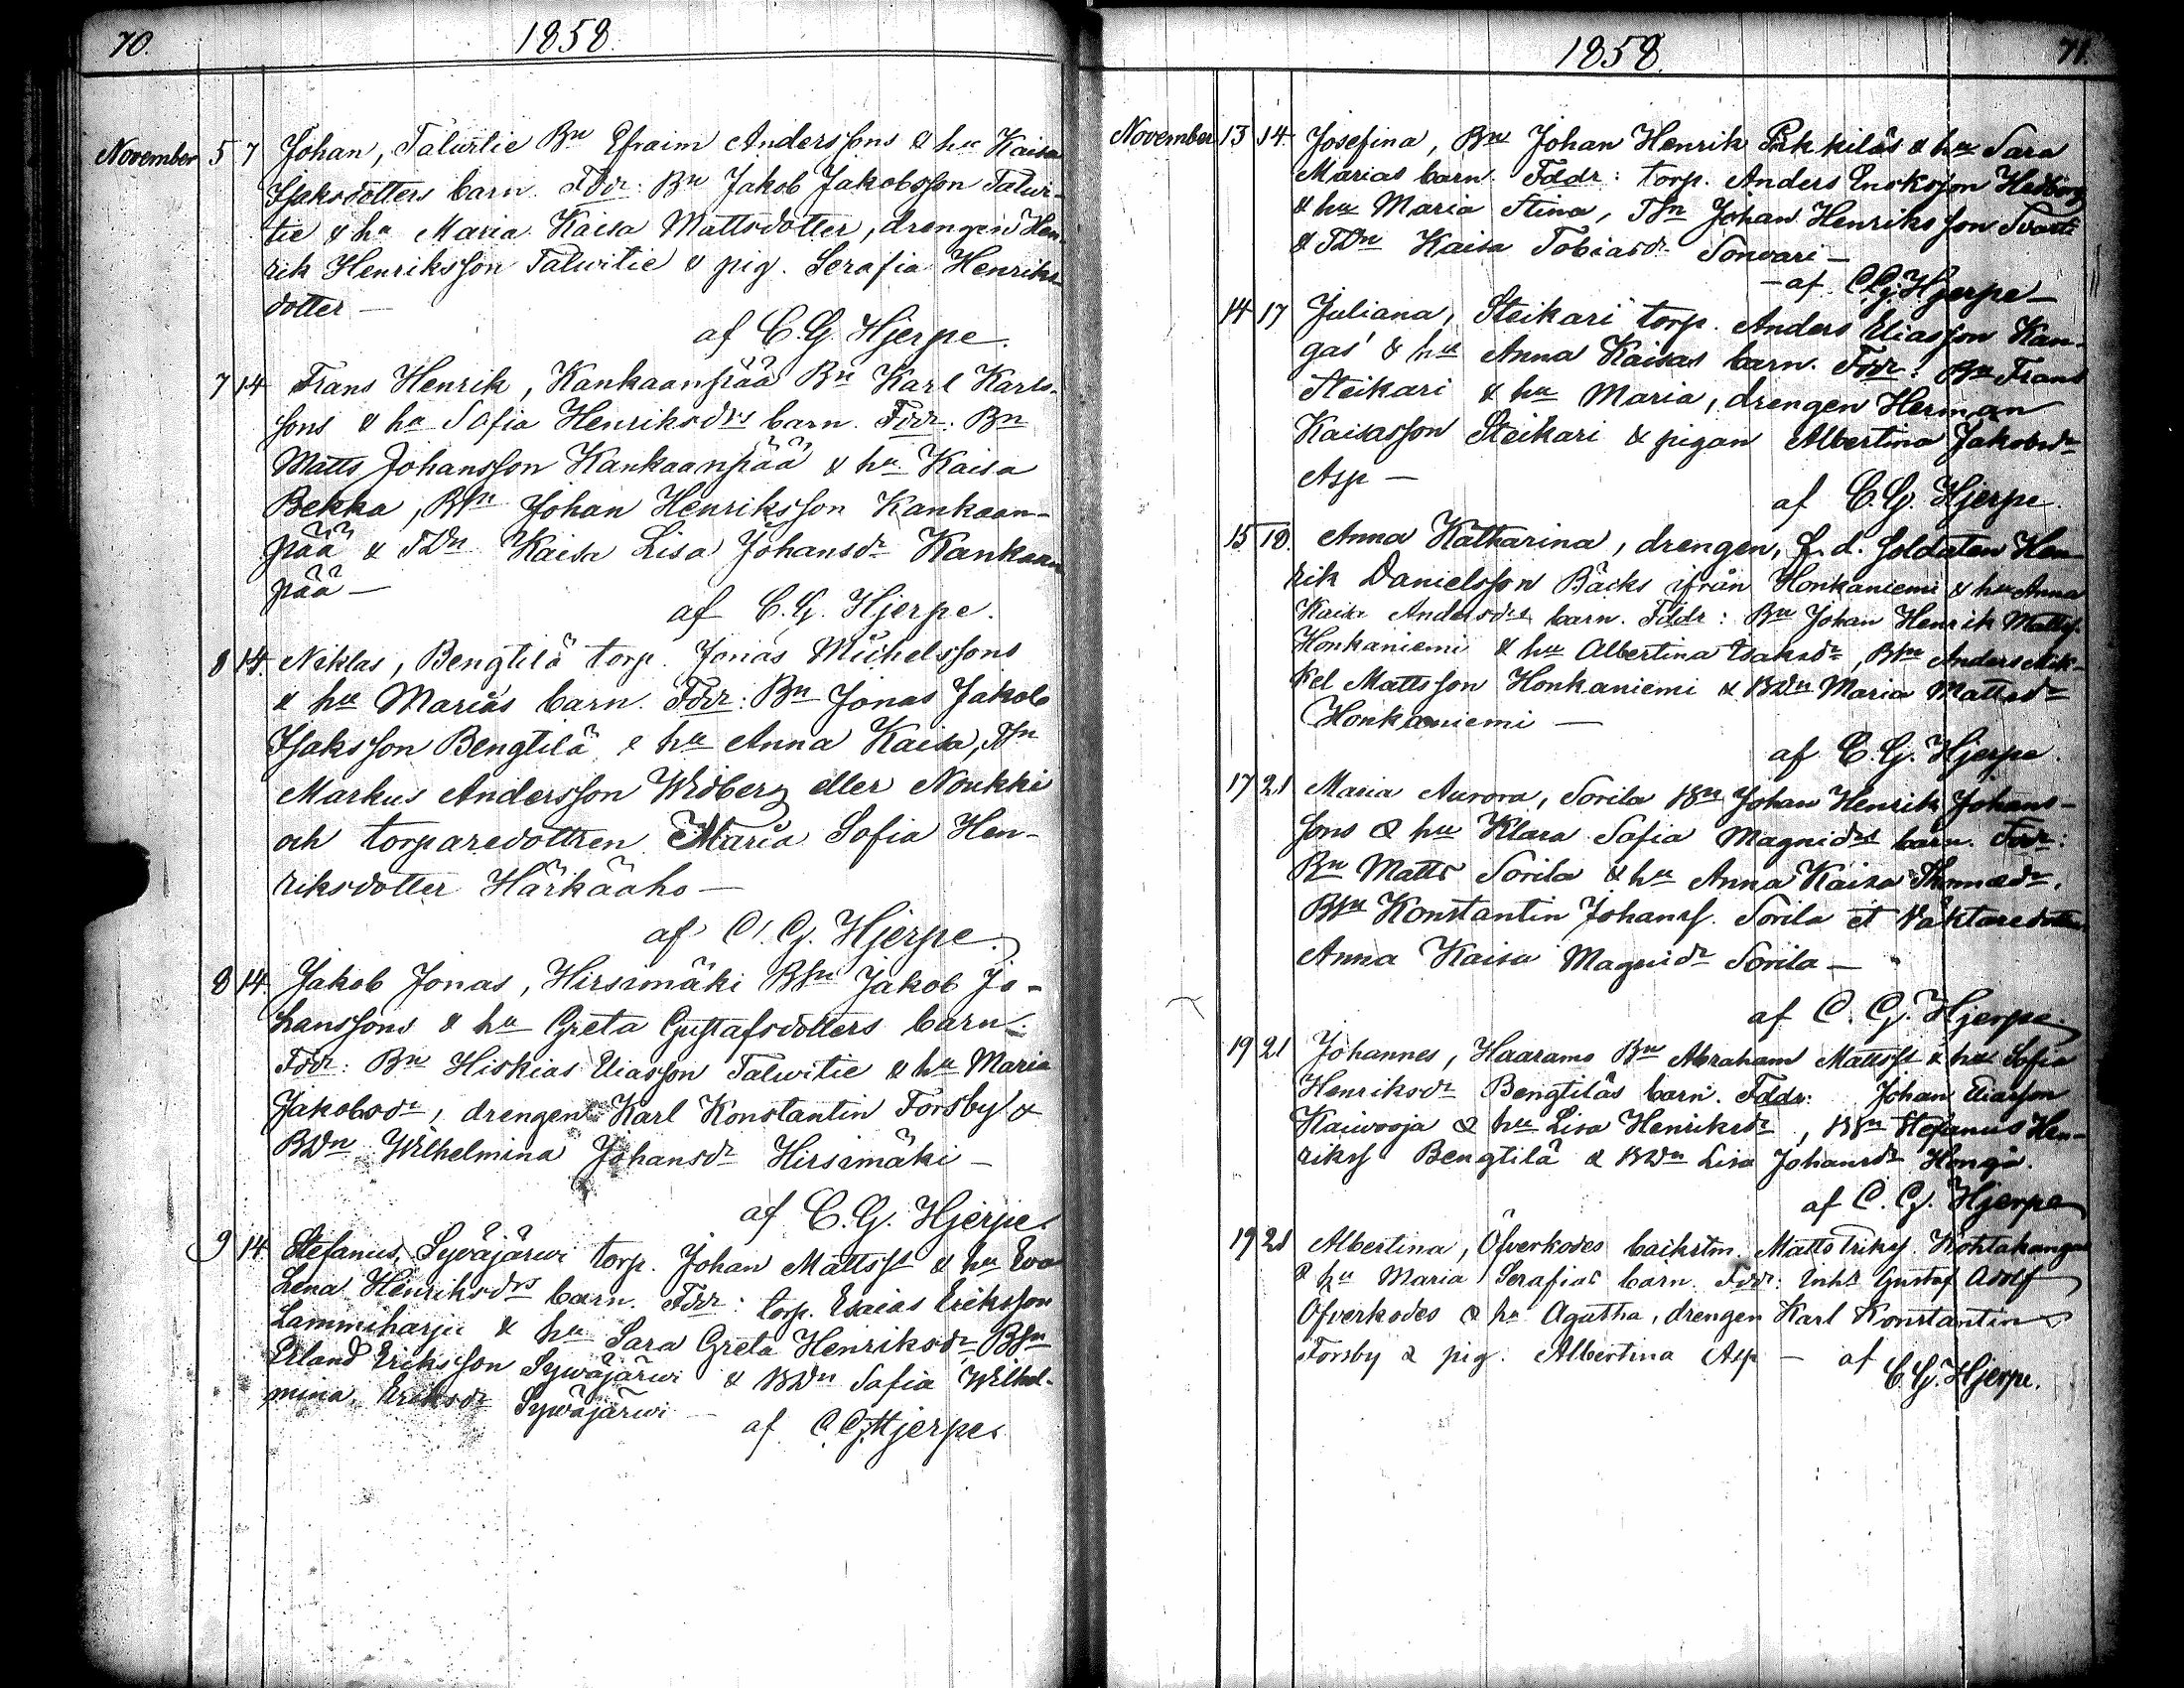 70.
1858.
November 5 7 Johan, Talwitie Bn Efraim Anderssons & hu Kaisa
Isaksdotters barn. Fddr: Bn Jakob Jakobsson Talwi-
tie & hu Maria Kaisa Mattsdotter, drengen Hen-
rik Henriksson Talwitie & pig. Serafia Henriks
dotter —
af C. G. Hjerpe.
7 14 Frans Henrik, Kankaanpää Bn Karl Karls-
sons & hu Sofia Henriksdrs barn. Fddr: Bn
Matts Johansson Kankaanpää & hu Kaisa
Bekka, BSn Johan Henriksson Kankaan-
pää & TDn Kaisa Lisa Johansdr Kankaan
pää —
af C. G. Hjerpe.
8 14. Niklas, Bengtilä torp. Jonas Michelssons
& hu Marias barn. Fddr: Bn Jonas Jakob
Isaksson Bengtilä & hu Anna Kaisa, TSn
Markus Andersson Widberg eller Noukki
och torparedottren Maria Sofia Hen-
riksdotter Härkäaho —
af C. G. Hjerpe.
8 14. Jakob Jonas, Hirsimäki BSn Jakob Jo-
hanssons & hu Greta Gustafsdotters barn.
Fddr: Bn Hiskias Eliasson Talwitie & hu Maria
Jakobsdr, drengen Karl Konstantin Forsby &
BDn Wilhelmina Johansdr Hirsimäki —
af C. G. Hjerpe.
9 14. Stefanus, Syväjärwi torp. Johan Mattss & hu Eva
Lena Henriksdrs barn. Fddr: torp. Esaias Eriksson
Lammiharju & hu Sara Greta Henriksdr, BSn
Erland Eriksson Sywäjärwi & BDn Sofia Wilhel-
mina Eriksdr Sywäjärwi —
af C. G. Hjerpe.
1858.
71.
November 13 14. Josefina, Bn Johan Henrik Pirkkiläs & hu Sara
Marias barn. Fddr: torp. Anders Eriksson Hedberg
& hu Maria Stina, TSn Johan Henriksson Svarti
& TDn Kaisa Tobiasdr Sonvari —
— af C. G. Hjerpe —
14 17 Juliana, Steikari torp. Anders Eliasson Kan-
gas' & hu Anna Kaisas barn. Fddr: Bn Frans
Steikari & hu Maria, drengen Herman
Kaisasson Steikari & pigan Albertina Jakobsdr
Asp —
af C. G. Hjerpe.
15 18. Anna Katharina, drengen, f. d. soldaten Hen-
rik Danielsson Bäcks ifrån Honkaniemi & hu Anna
Kaisa Andersdrs barn. Fddr: Bn Johan Henrik Mattss.
Honkaniemi & hu Albertina Isaksdr, BSn Anders Mik-
kel Mattsson Honkaniemi & BDn Maria Mattsdr
Honkaniemi —
af C. G. Hjerpe.
17 21 Maria Aurora, Sorila BSn Johan Henrik Johans-
sons & hu Klara Sofia Magnidrs barn. Fddr:
Bn Matts Sorila & hu Anna Kaisa Thomasdr,
BSn Konstantin Johanss. Sorila et Väktaredottern
Anna Kaisa Magnidr Sorila —
af C. G. Hjerpe.
19 21 Johannes, Haaramo Bn Abraham Mattss & hu Sofia
Henriksdr Bengtiläs barn. Fddr: Johan Eliasson
Kaivooja & hu Lisa Henriksdr, BSn Stefanus Hen-
rikss Bengtilä & BDn Lisa Johansdr Honga.
af C. G. Hjerpe
19 21 Albertina, Öfverkodes backstm. Matts Erikss. Kohtakangas
& hu Maria Serafias barn. Fddr: Inhs Gustaf Adolf
Öfverkodes & hu Agatha, drengen Karl Konstantin
Forsby & pig. Albertina Asp — af
C. G. Hjerpe.